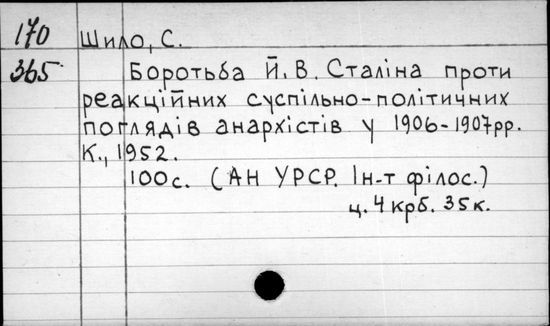 170 Шило, С.
365 Боротьба Й. В. Сталіна проти
реакційних суспільно-політичних
поглядів анархістів у 1906-1907рр.
К., 1952.
100с. (АН УРСР. Ін-т філос.)
ц. 4 крб. 35 к.